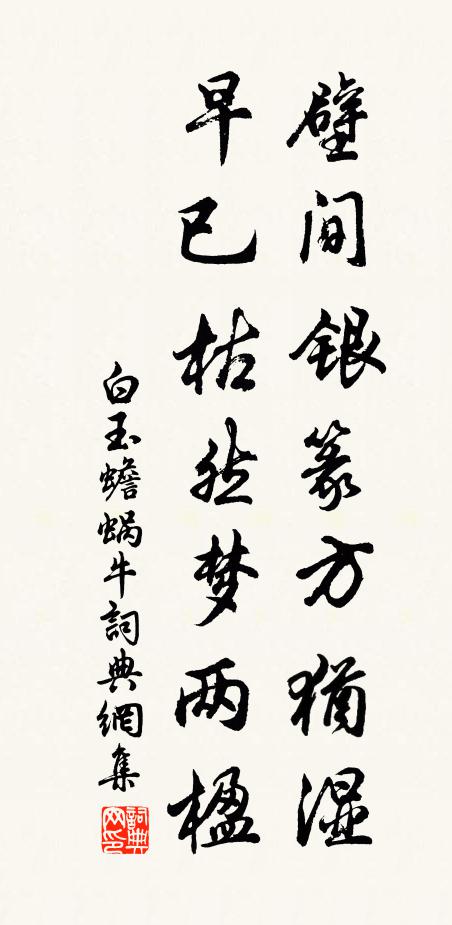 壁间银篆方犹湿
早已枯然梦两楹
白玉蟾蜗牛詞典網集
詞典
网印